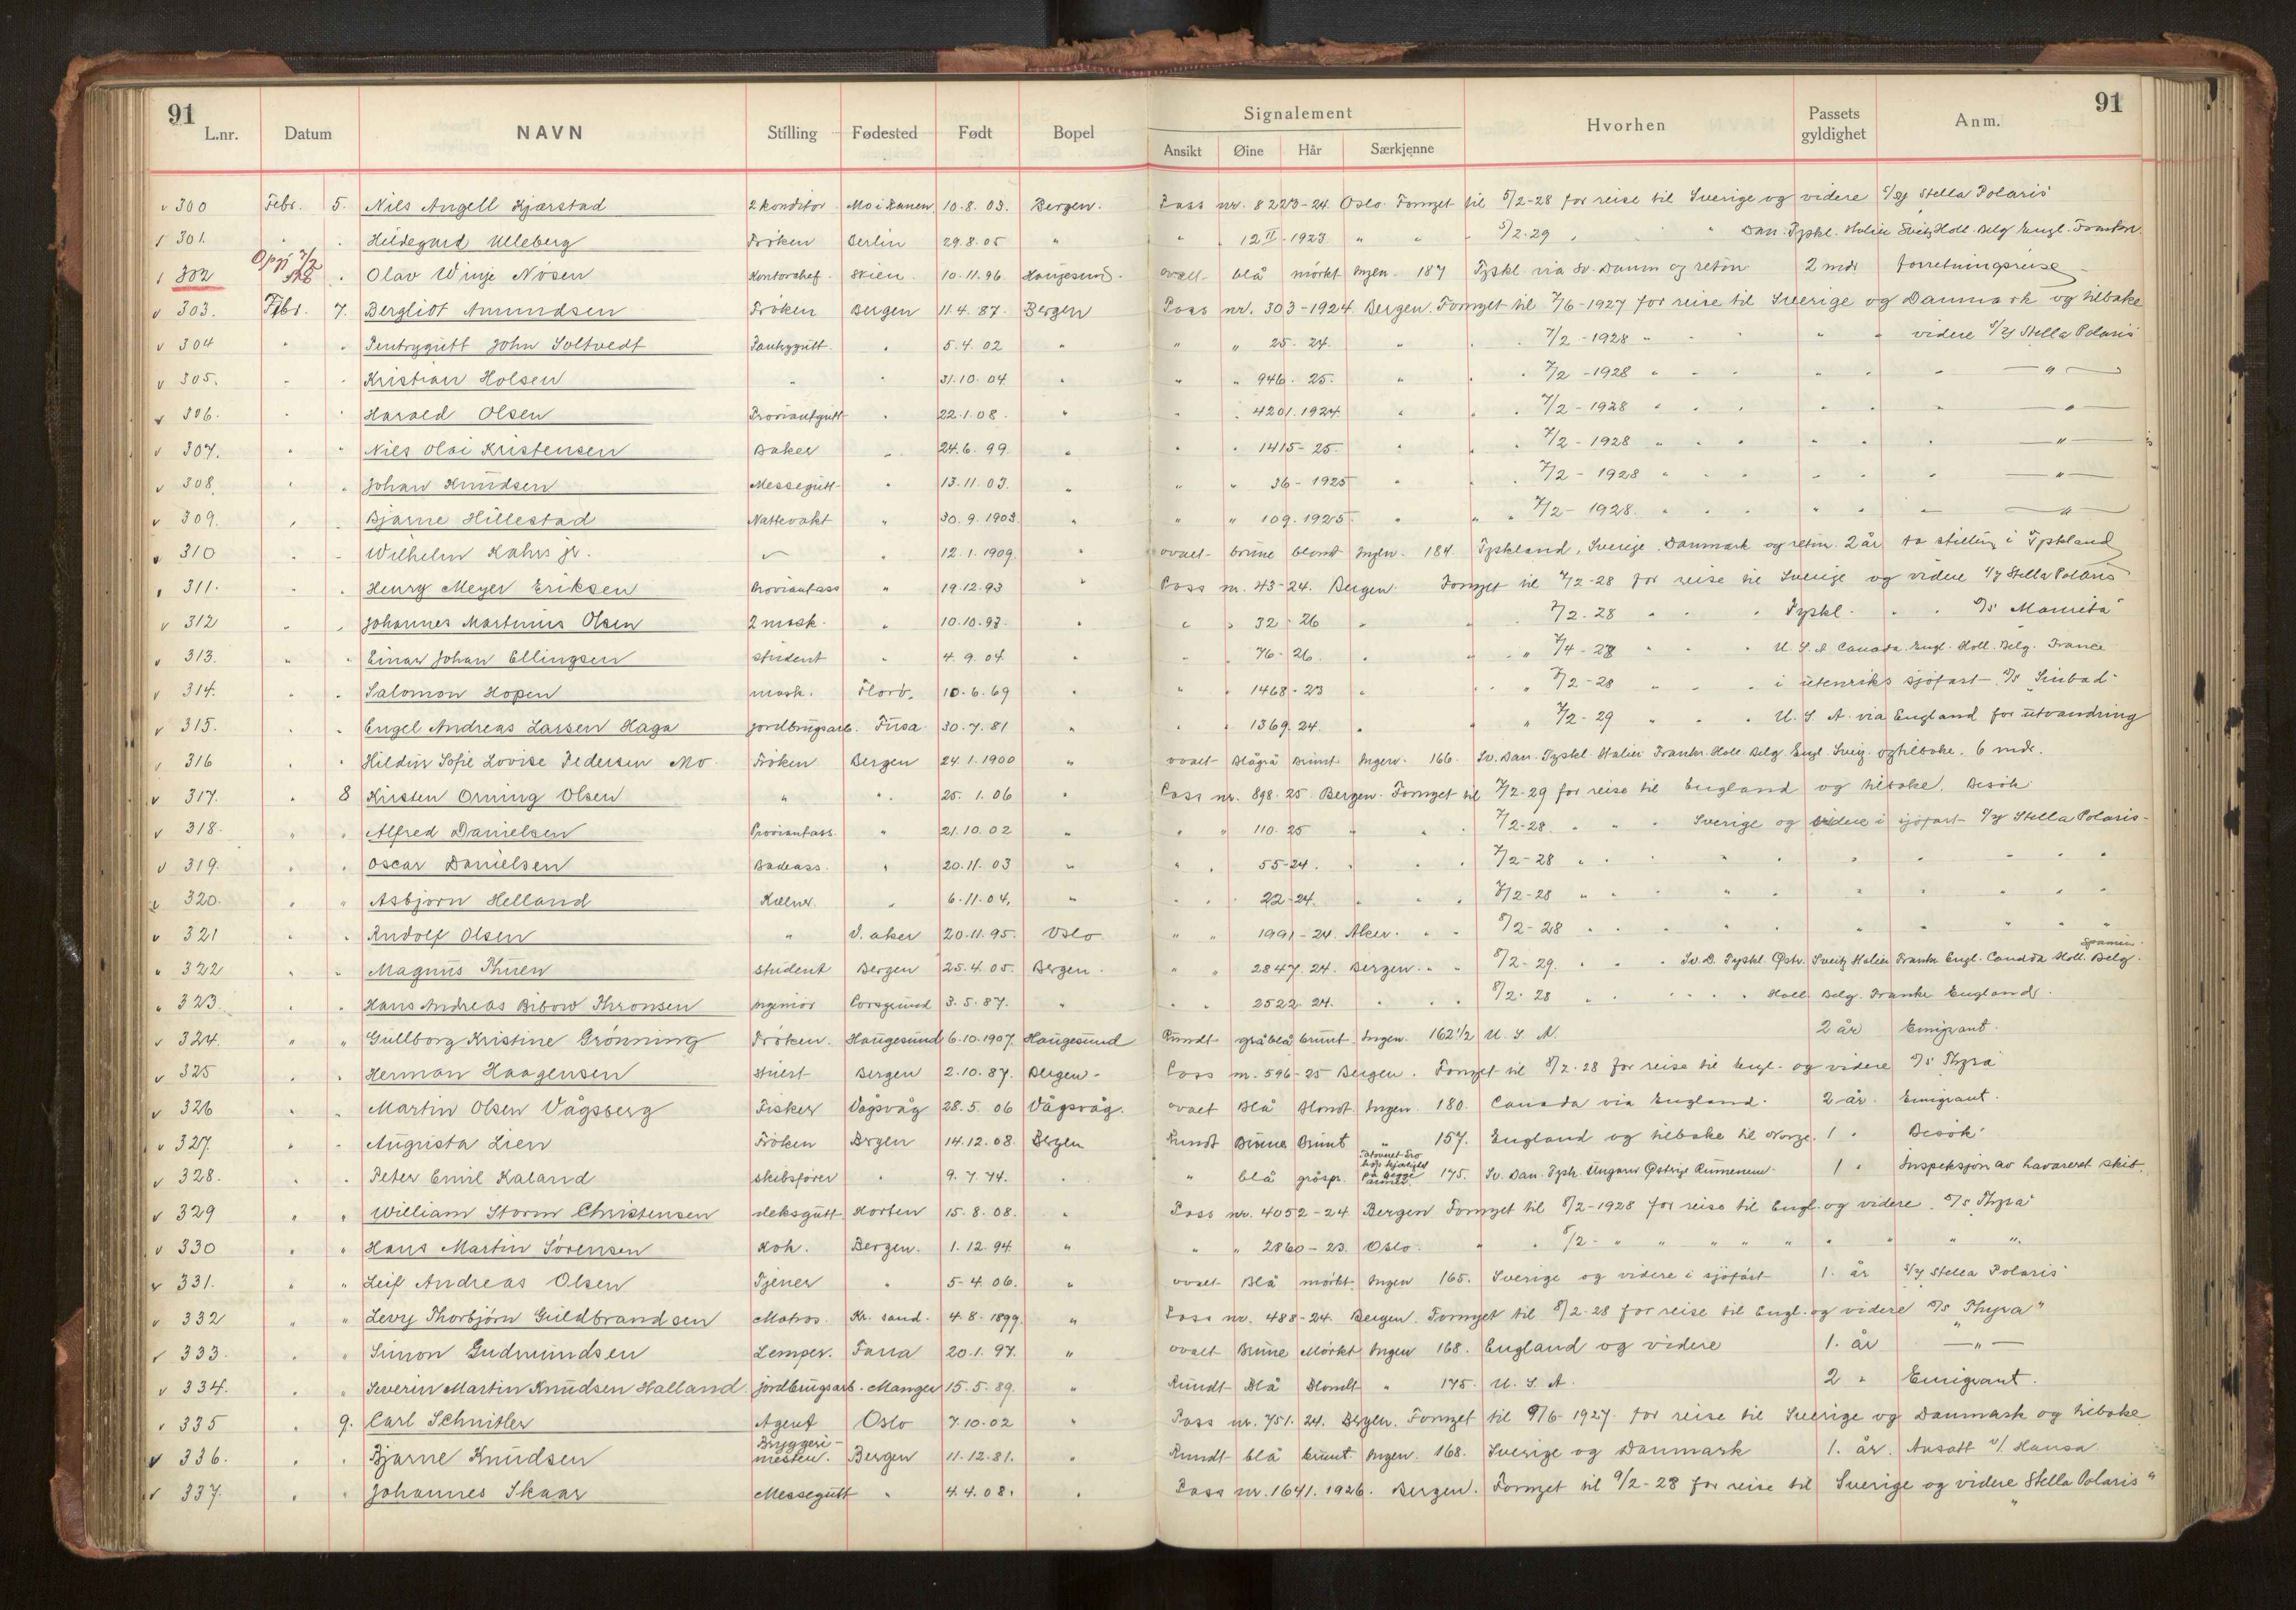 91
91
L.nr. Datum NAVN Stilling Fødested Født Bopel Signalement Hvorhen Passets gyldighet Anm.
Ansikt Øine Hår Særkjenne
300 Febr. 5. Nils Angell Kjærstad 2 konditor Mo i Ranen 10.8.03. Bergen. Pass nr. 8223-24. Oslo. Fornyet til 5/2-28 for reise til Sverige og videre S/Y Stella Polaris
301. " . Hildegard Ulleberg Frøken Berlin 29.8.05 " " . 12 II-1923 " " - 5/2.29 , " Dan. Tyskl. Italien Sveitz Holl. Belg Engl. Frankr.
302 . Olav Winje Nösen Kontorchef. Skien. 10.11.96. Haugesund. ovalt blå mörkt Ingen. 187 Tyskl. via Sv. Danm og retur 2 mdr forretningsreise
303. Febr. 7. Bergliot Amundsen Frøken Bergen 11.4.87. Bergen Pass nr. 303-1924. Bergen. Fornyet til 7/6-1927 for reise til Sverige og Danmark og tilbake
304 " . Pentrygutt John Soltvedt Pantrygutt. . 5.4.02 " " " 25-24. " . . 7/2-1928 " " " " videre S/Y Stella Polaris
305. . . Kristian Holsen " . 31.10.04. . " " 946.25. " . . 7/2-1928 " . . . . . — " —
306. . . Harald Olsen Proviantgutt . 22.1.08. " . . 4201.1924. . . . 7/2-1928 " . . . . . — " —
307. . . Nils Olai Kristensen Baker . 24.6.99. . . . 1415-25. . . . 7/2-1928 " . . . . . — " —
308. . . Johan Knudsen Messegutt . 13.11.03. . " " 36-1925 . . . 7/2-1928 " . . . . . — " —
309. . . Bjarne Hillestad Nattevakt " 30.9.1903. " " " 109.1925. . " . 7/2-1928. . . . . . . — " —
310 . . Wilhelm Kahrs jr. . 12.1.1909. " ovalt brune blondt Ingen. 184 Tyskland, Sverige Danmark og retur. 2 år ta stilling i Tyskland
311. . . Henry Meyer Eriksen Proviantass " 19.12.93 " Pass nr. 43-24. Bergen. Fornyet til 7/2-28 for reise til Sverige og videre S/Y Stella Polaris
312 . . Johannes Martinius Olsen 2 mask. . 10.10.93. . " " 32-26 . . 7/2.28 . . . Tyskl. . . D/S Manita
313. . . Einar Johan Ellingsen Student . 4.9.04. . . . 76-26. . . . " 7/4-28 " . . U.S.A Canada. Engl. Holl. Belg. France
314. . . Salomon Hopen mask. Florö. 10.6.69 . " . 1468-23 . . . " 7/2-28 " . . i utenriks sjöfart D/S "Sinbad"
315. . . Engel Andreas Larsen Haga jordbrugsarb. Fusa. 30.7.81 " . . 1369.24. . . " 7/2-29 " . . U.S.A. via England for utvandring
316 . . Sofie Lovise Pedersen Mo. Frøken Bergen 24.1.1900 " ovalt Blågrå Brunt. Ingen. 166. Sv. Dan. Tyskl. Italien Frankr. Holl. Belg. Engl. Sveiz. og tilbake. 6 mdr.
317. . 8 Kirsten Orning Olsen " . 25.1.06 . Pass nr. 898.25. Bergen. Fornyet til 7/2-29 for reise til England og tilbake. Besök
318. . . Alfred Danielsen Proviantass. " 21.10.02 " . " 110.25 . . . 7/2-28. . . . Sverige og videre i sjöfart S/Y Stella Polaris.
319. . . Oscar Danielsen Badeass. . 20.11.03 " " . 55-24. . . . 7/2-28 . . . . . . . . .
320. . " Asbjørn Helland Kelner . 6.11.04. " . . . 22-24. . . . 7/2-28 " . . " . . . . .
321 . . Rudolf Olsen " V. aker 20.11.95. Oslo. " " 1991-24. Aker. . . 8/2-28 . . . . . . . . .
322 . . Magnus Thuen student Bergen 25.4.05. Bergen. " . 2847.24. Bergen. . . 8/2-29. . . . Sv. D. Tyskl. Østr. Sveitz Italien Frankr Engl. Canada Holl. Belg. Spanien.
323. . . Hans Andreas Bibow Thronsen ingeniör Porsgrund 3.5.87. " . . 2522.24. . . . 8/2.28 . . . . Holl. Belg. Frankr. England.
324. " " Gullborg Kristine Grønning Frøken. Haugesund 6.10.1907. Haugesund Rundt gråblå brunt. Ingen. 162 1/2 U.S.A. 2 år Emigrant.
325 . . Herman Haagensen Stuert Bergen 2.10.87. Bergen. Pass nr. 596-25 Bergen. Fornyet til 8/2.28 for reise til Engl. og videre D/S Thyra
326 . . Martin Olsen Vågsberg Fisker Vågsvåg 28.5.06 Vågsvåg. ovalt Blå Blondt Ingen. 180. Canada via England. 2 år. Emigrant.
327. . . Augusta Lien Frøken Bergen 14.12.08. Bergen Rundt Brune Brunt " 157. England og tilbake til Norge. 1 . Besök
328. . . Peter Emil Kaland skibsfører . 9.7.74. . " blå gråspr. Tatoveret Tro håp kjærlighet på begge armer. 175. Sv. Dan. Tysk. Ungarn Østrige Rumenien. 1 . Inspeksjon av havareret skib.
329 . . William Storm Christensen deksgutt. Horten 15.8.08. . Pass nr. 4052-24 Bergen Fornyet til 8/2-1928 for reise til Engl. og videre D/S Thyra
330 . . Hans Martin Sørensen Kok. Bergen. 1.12.94. " " " 2860-23. Oslo. " . 8/2- " " " " " . " " "
331. . " Leif Andreas Olsen Tjener " 5-4.06. " ovalt Blå mörkt. Ingen 165. Sverige og videre i sjöfart 1. år S/Y Stella Polaris
332 . " Levy Thorbjørn Guldbrandsen Matros. Kr. sand. 4.8.1899. " Pass nr. 488-24. Bergen. Fornyet til 8/2-28 for reise til Engl. og videre D/S "Thyra"
333. . " Simon Gudmundsen Lemper. Fana 20.1.97. " ovalt Brune Mörkt Ingen 168. England og videre 1. år — " —
334. . " Severin Martin Knudsen Halland jordbrugsarb. Manger 15.5.89. " Rundt Blå Blondt " 175. U.S.A. 2 " Emigrant.
335 . 9. Carl Schnitler Agent Oslo 7.10.02 " Pass nr. 751.24. Bergen. Fornyet til 9/6-1927. for reise til Sverige og Danmark og tilbake
336. . . Bjarne Knudsen Bryggeri-mester. Bergen 11.12.81. . Rundt blå brunt. Ingen. 168. Sverige og Danmark 1. år. Ansatt v/ Hansa.
337. . . Johannes Skaar Messegutt . 4.4.08. . Pass nr. 1641.1926. Bergen. Fornyet til 9/2-28 for reise til Sverige og videre "Stella Polaris"